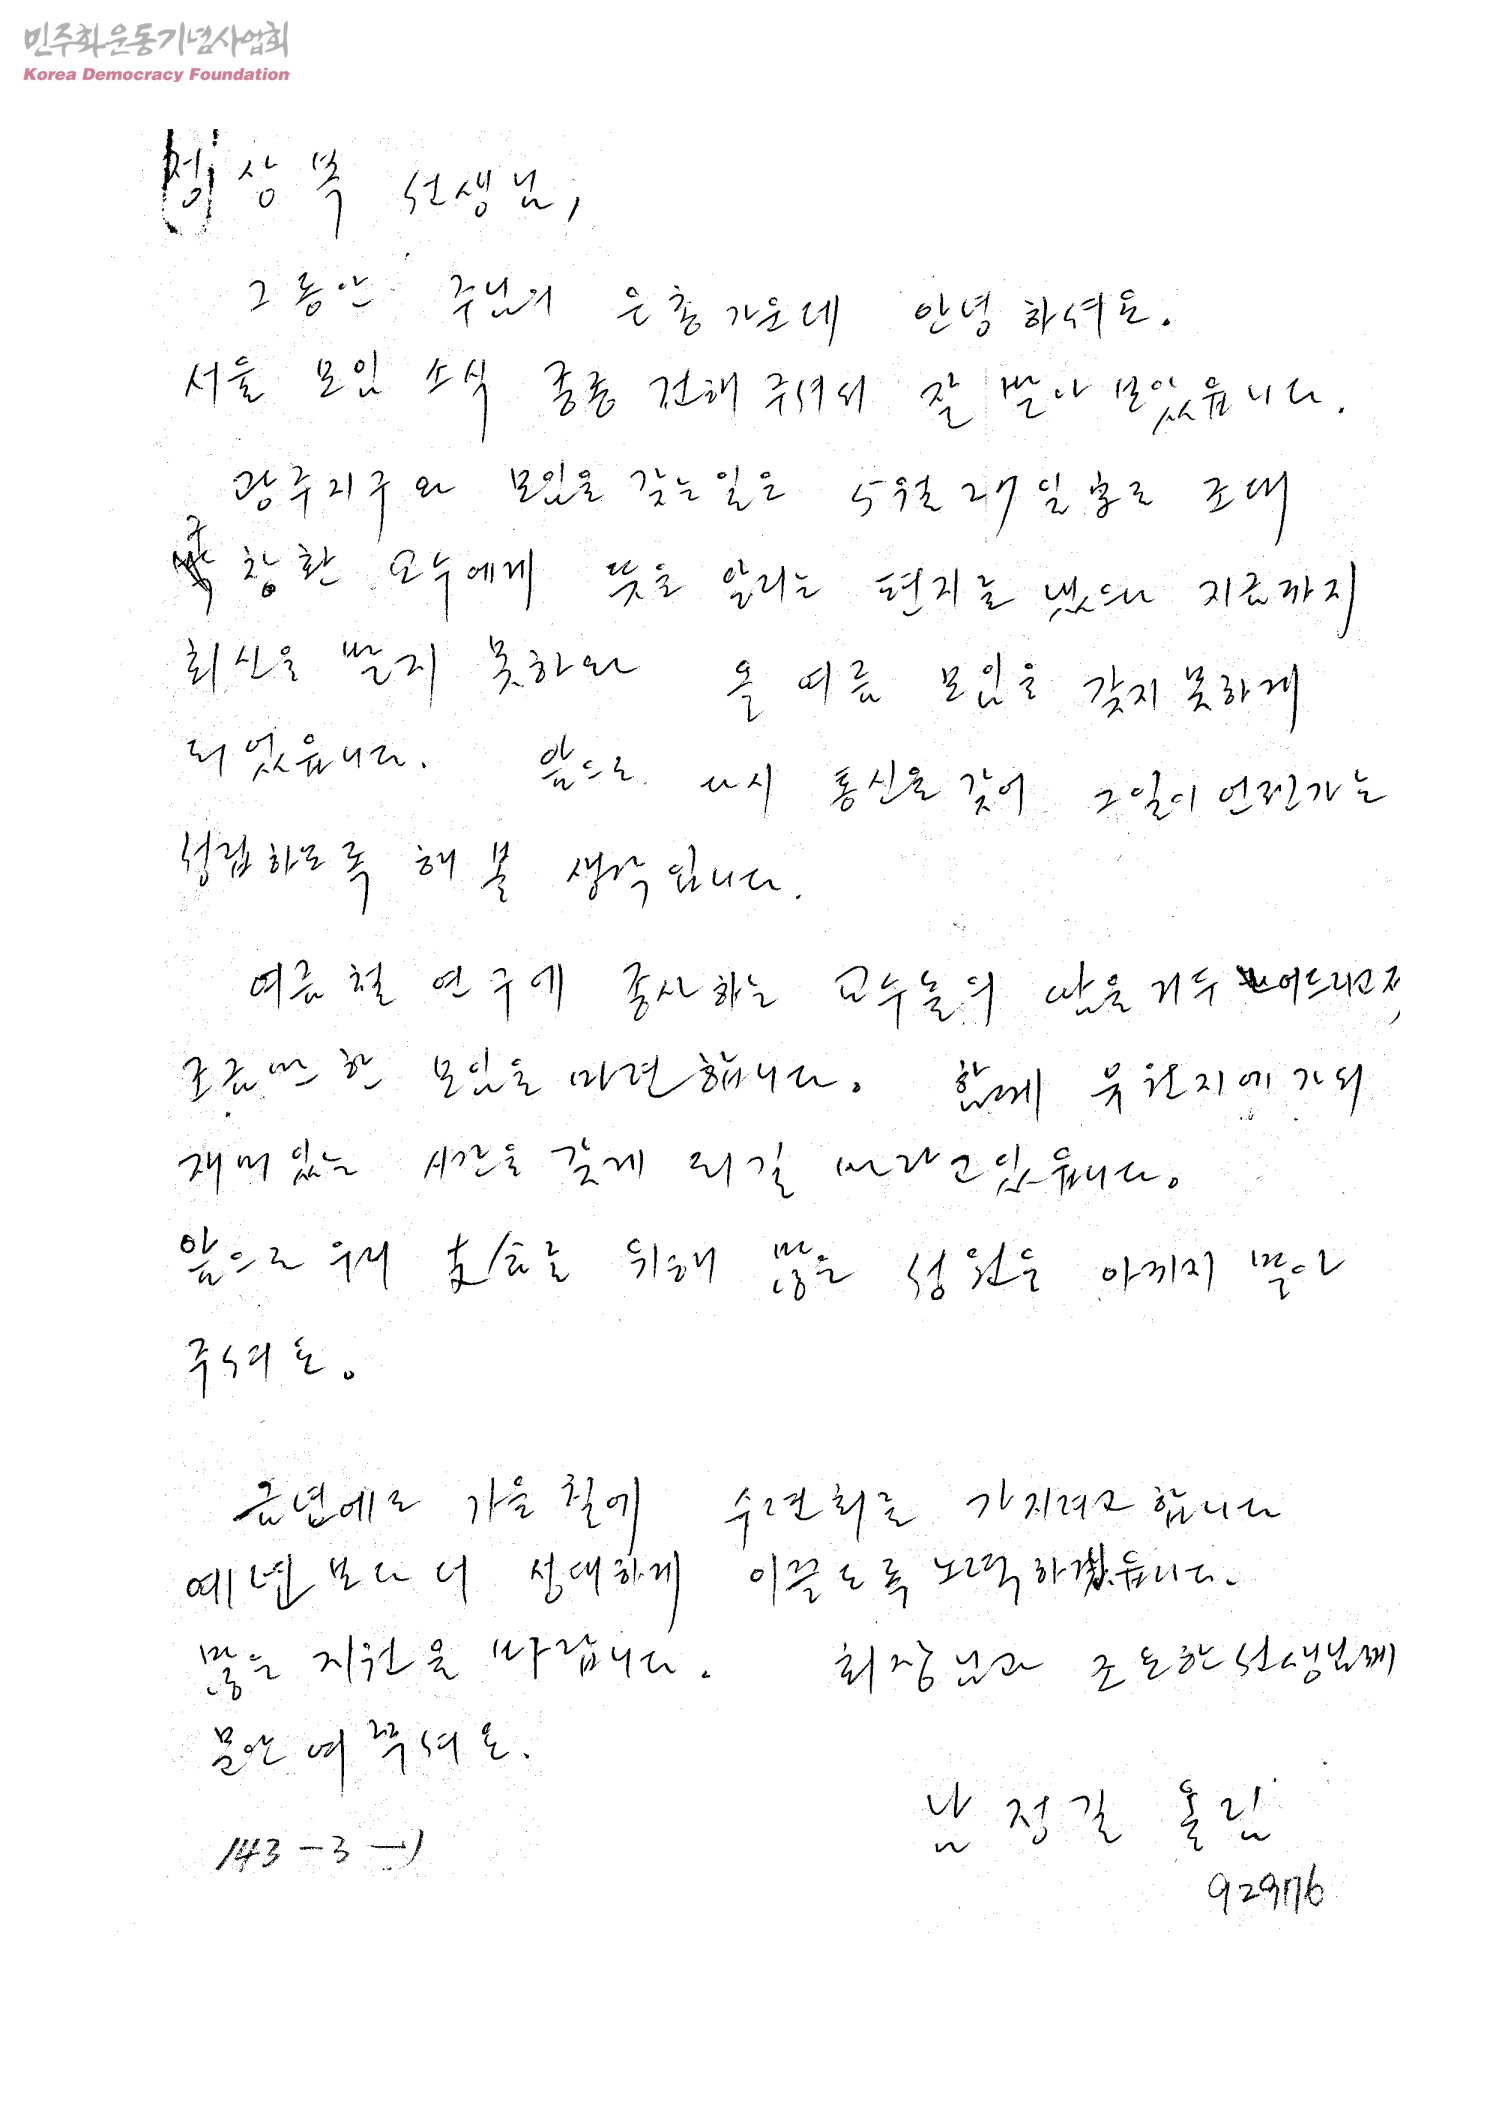 민주화운동기념사업회
Korea Democracy Foundation
정상복 선생님,
그동안 주님의 은총 가운데 안녕하셔요.
서울 모임 소식 종종 전해 주셔서 잘 받아 보았읍니다.
광주지구와 모임을 갖는 일은 5월 27일 조대
창환 교수에게 뜻을 알리는 편지를 냈으나 지금까지
회신을 받지 못하와 올 여름 모임을 갖지 못하게
되었읍니다. 앞으로 다시 통신을 갖어 그 일이 언젠가는
성립하도록 해 볼 생각입니다.
여름철 연구에 종사하는 교수들의 땀을 거두어드리고저
조금만한 모임을 마련합니다. 함께 유원지에 가서
재미있는 시간을 갖게 되길 바라고 있읍니다.
앞으로 우리 支会를 위해 많은 성원을 아끼지 말아
주셔요.
금년에도 가을철에 수련회를 가지려고 합니다
예년보다 더 성대하게 이끌도록 노력하겠읍니다.
많은 지원을 바랍니다. 회장님과 조요한 선생님께
문안 여쭈셔요.
남정길 올림
143-3-1
92976